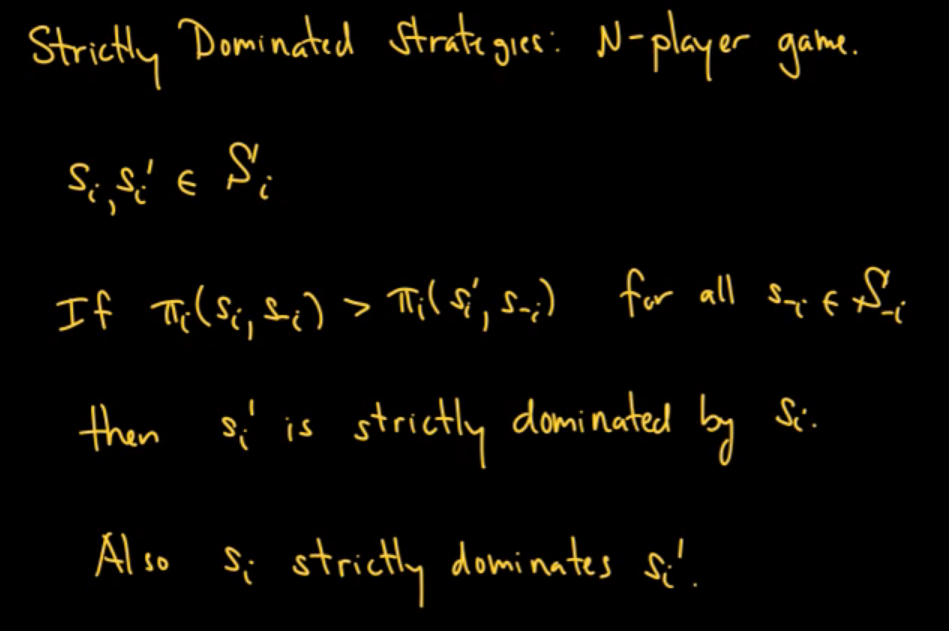 Strictly Dominated Strategies: N-player game.
sᵢ, sᵢ' ∈ Sᵢ
If πᵢ(sᵢ, s₋ᵢ) > πᵢ(sᵢ', s₋ᵢ) for all s₋ᵢ ∈ S₋ᵢ
then sᵢ' is strictly dominated by sᵢ.
Also sᵢ strictly dominates sᵢ'.